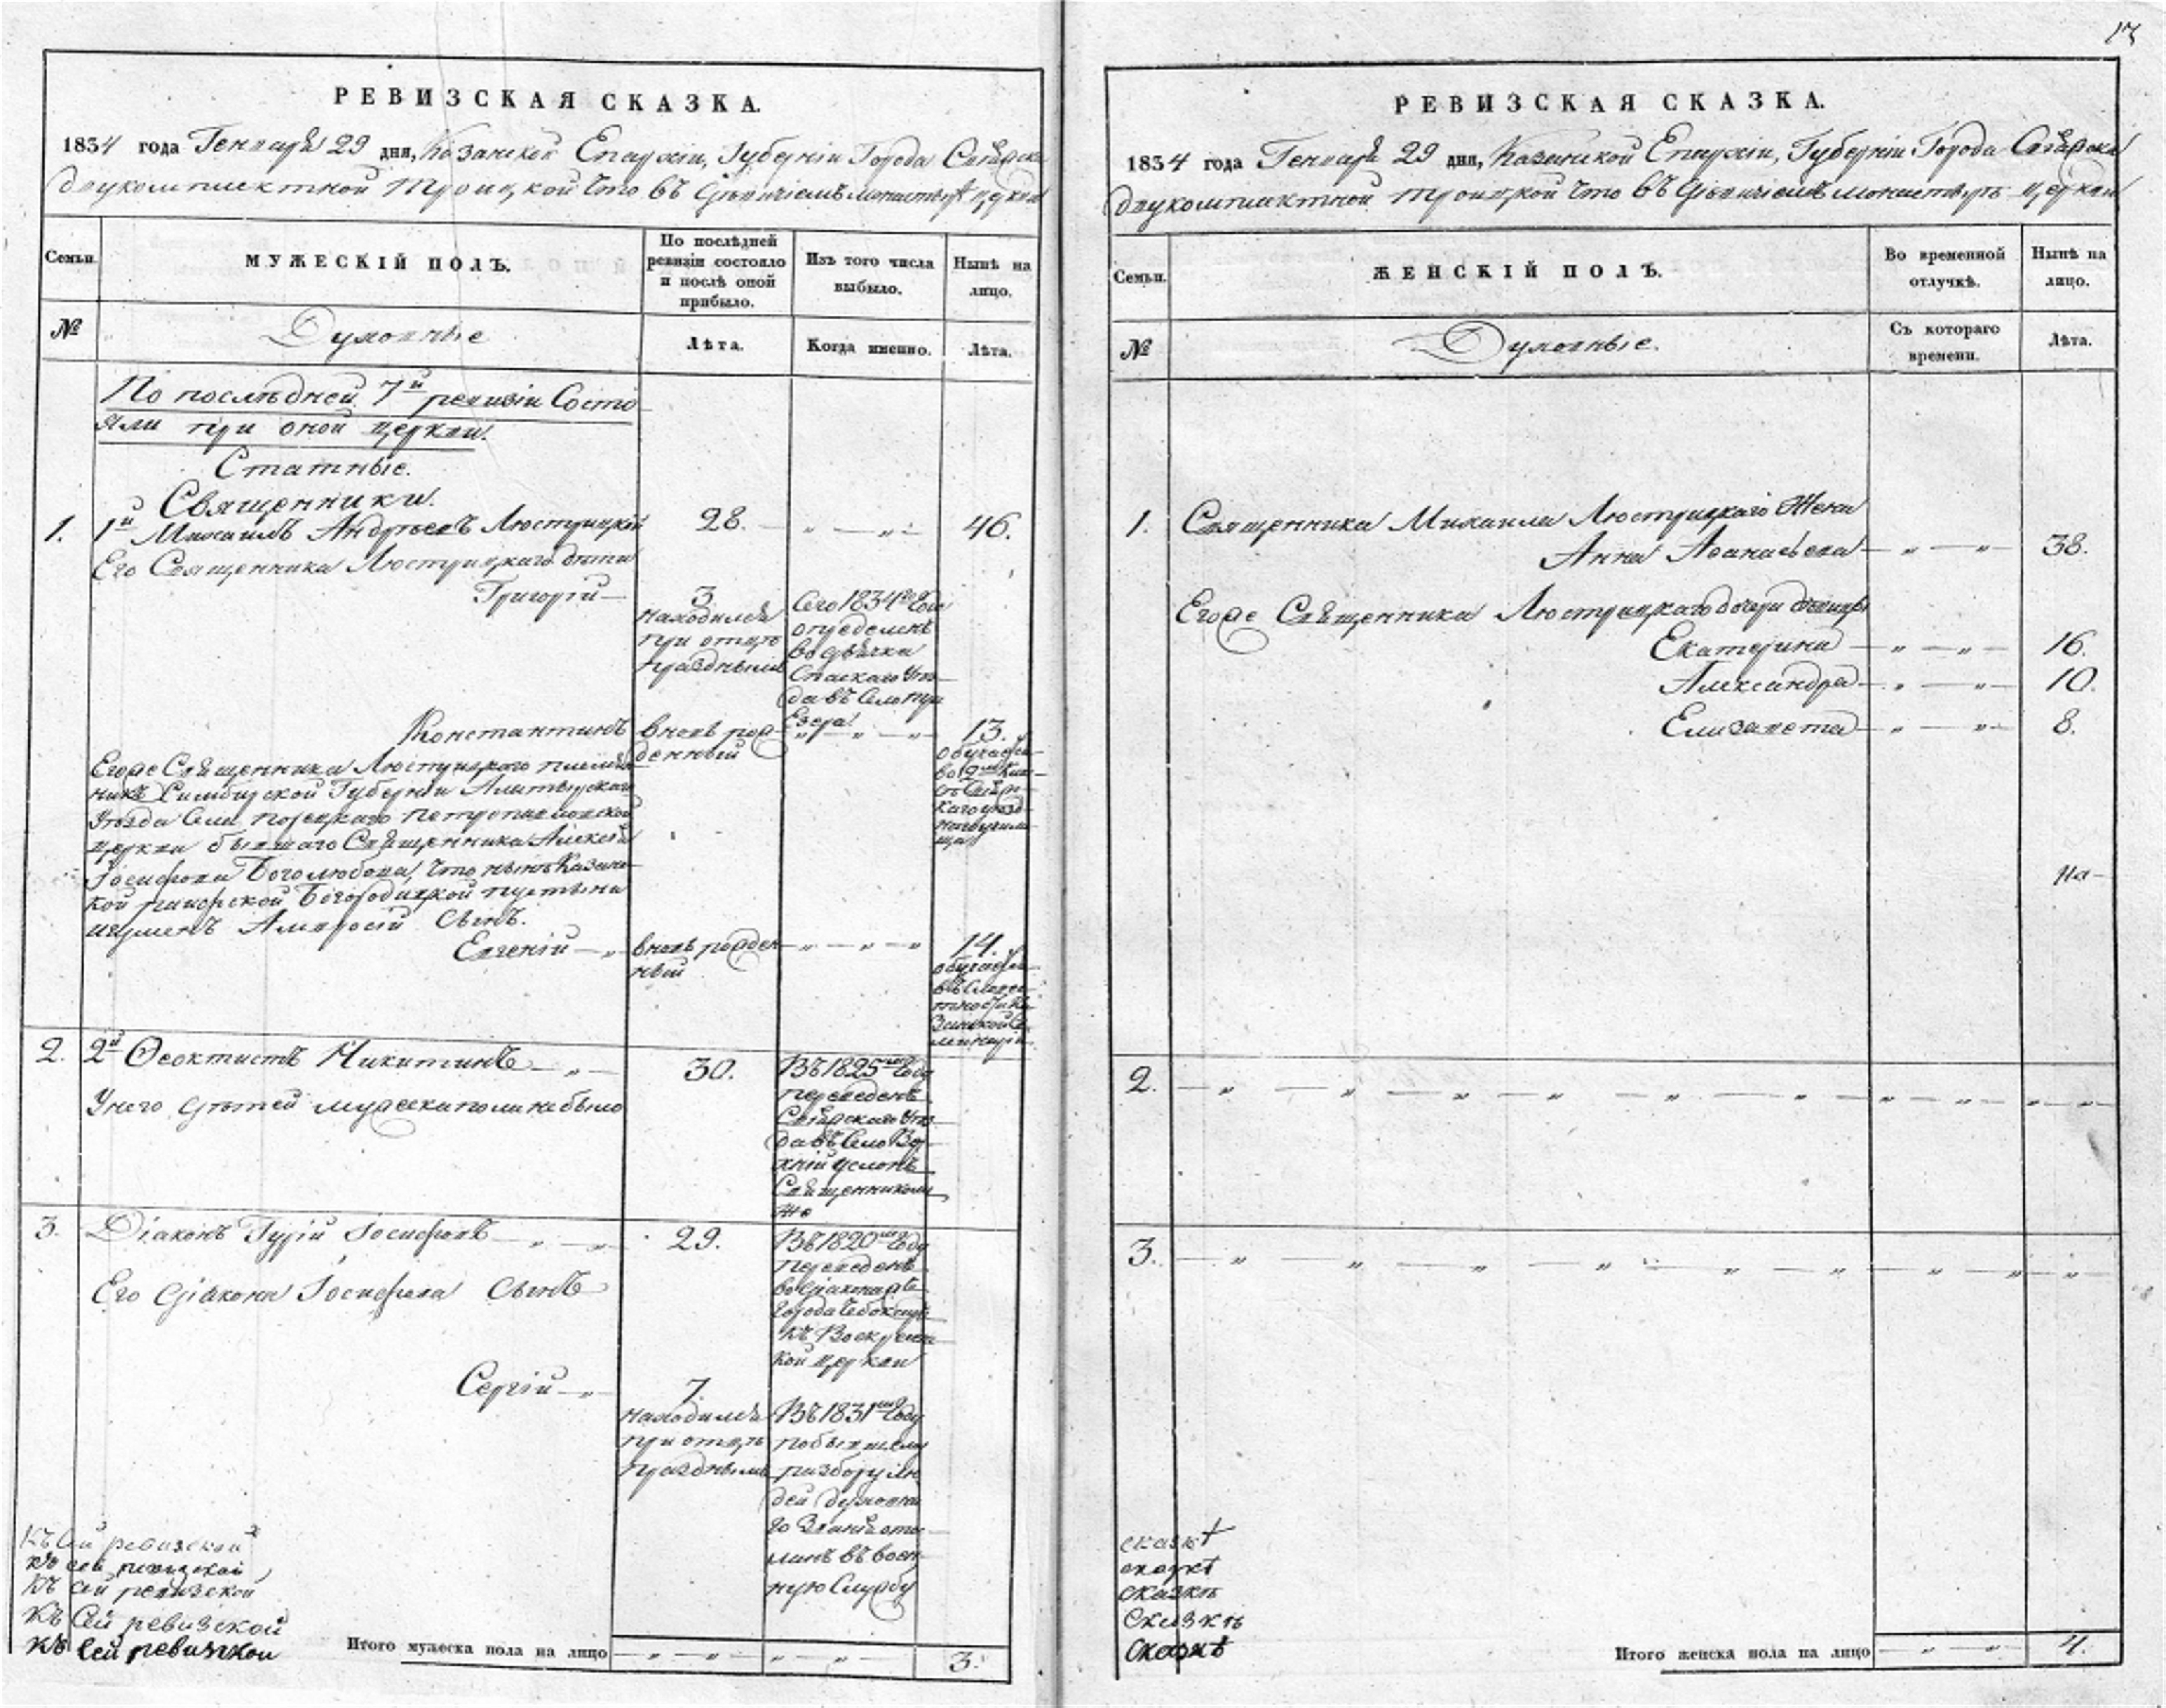 13
РЕВИЗСКАЯ СКАЗКА.
1834 года Генваря 29 дня, Казанской Епархіи, Губерніи Города Свіяжска
двукомплектной Троицкой что въ Дѣвичіемъ монастырѣ церкви
Семьи.
МУЖЕСКІЙ ПОЛЪ.
По послѣдней ревизіи состояло и послѣ оной прибыло.
Изъ того числа выбыло.
Нынѣ на лицо.
№
Духовные
Лѣта.
Когда именно.
Лѣта.
По послѣдней 7й ревизіи Состо
яли при оной церкви.
Статные.
Священники.
1. 1й Михаилъ Андреевъ Люстрицкій 28. " — " — 46.
Его Священника Люстрицкаго дѣти
Григорій — 3
находился
при отцѣ
празднымъ
Сего 1834го Года
опредѣленъ
во дьячка
Спаскаго Уѣз
да въ Село три
Езера.
Константинъ вновь рож
денный " — " — 13.
обучается
Егоже Священника Люстрицкаго племян
никъ Симбирской Губерніи Алатырскаго
Уѣзда Села Порецкаго Петропавловской
церкви бывшаго Священника Алексѣя
Іосифова Боголюбова, что нынѣ Казан
кой Раифской Богородицкой пустыни
игуменъ Амвросій Сынъ.
Евгеній — " вновь рожден
ный — " — " — " 14.
обучается
2. 2й Ѳеоктистъ Никитинъ — " — 30.
У него дѣтей мужеска пола не было
Въ 1825мъ Году
переведенъ
Свіяжскаго Уѣз
да въ Село Вер
хній Услонъ
Священникомъ
же
3. Діаконъ Гурій Іосифовъ — " — " 29.
Его Діакона Іосифова Сынъ
Въ 1820мъ Году
переведенъ
во діакона же
Города Чебоксаръ
къ Воскресен
кой церкви
Сергій — " 7.
находился
при отцѣ
празднымъ
Въ 1831мъ Году
по бывшему
разбору лю
дей духовна
го Званія отос
ланъ въ воен
ную Службу
Къ Сей ревизской
къ сей ревизской
Къ сей ревизской
Къ Сей ревизской
къ Сей ревизской
Итого мужеска пола на лицо — " — " — " — " — 3.
РЕВИЗСКАЯ СКАЗКА.
1834 года Генваря 29 дня, Казанской Епархіи, Губерніи Города Свіяжска
двукомплектной троицкой что въ Дѣвичіемъ монастырѣ церкви
Семьи.
ЖЕНСКІЙ ПОЛЪ.
Во временной отлучкѣ.
Нынѣ на лицо.
№
Духовные.
Съ котораго времени.
Лѣта.
1. Священника Михаила Люстрицкаго Жена
Анна Аѳанасьева — " — " — 38.
Егоже Священника Люстрицкаго дочери
Екатерина — " — " — 16.
Александра — " — " — 10.
Елизавета — " — " — 8.
2. — " — " — " — " — " — " — " — " — " —
3. — " — " — " — " — " — " — " — " — " —
сказкѣ
сказкѣ
сказкѣ
Сказкѣ
Сказкѣ
Итого женска пола на лицо — " — " — 4.